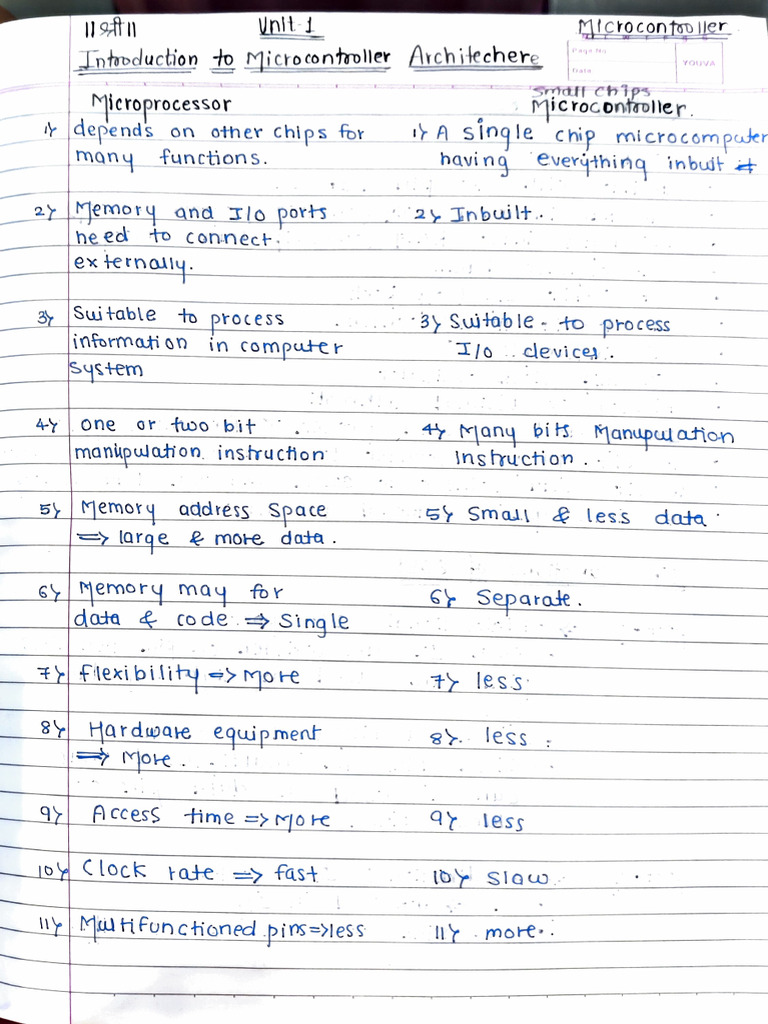 ॥श्री॥ Unit-1 Microcontroller
Introduction to Microcontroller Architechere
Page No.
Date
YOUVA
Microprocessor
small chips
Microcontroller.
1) depends on other chips for
many functions.
1) A single chip microcomputer
having everything inbuit
2) Memory and I/o ports
need to connect.
externally.
2) Inbuilt.
3) Suitable to process
information in computer
system
3) Suitable to process
I/o devices.
4) one or two bit
manipulation instruction
4) Many bits Manupulation
Instruction.
5) Memory address space
⇒ large & more data.
5) Small & less data
6) Memory may for
data & code ⇒ Single
6) Separate.
7) flexibility ⇒ More
7) less
8) Hardware equipment
⇒ More.
8) less
9) Access time ⇒ More
9) less
10) Clock rate ⇒ fast
10) slow
11) Multifunctioned pins ⇒ less
11) more.